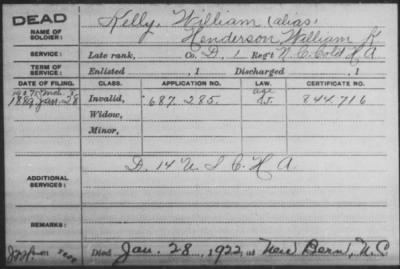 DEAD
NAME OF SOLDIER:
Kelly, William (alias)
Henderson, William K
SERVICE:
Late rank, Co. D, 1 Reg't N.C. Cold H A
TERM OF SERVICE:
Enlisted , 1 Discharged , 1
DATE OF FILING. CLASS. APPLICATION NO. LAW. CERTIFICATE NO.
1889 Jan. 28 Invalid, 687.285. age 844.716
Widow,
Minor,
ADDITIONAL SERVICES:
D. 14 U S C H A
REMARKS:
Died Jan. 28, 1922, at New Bern, N.C